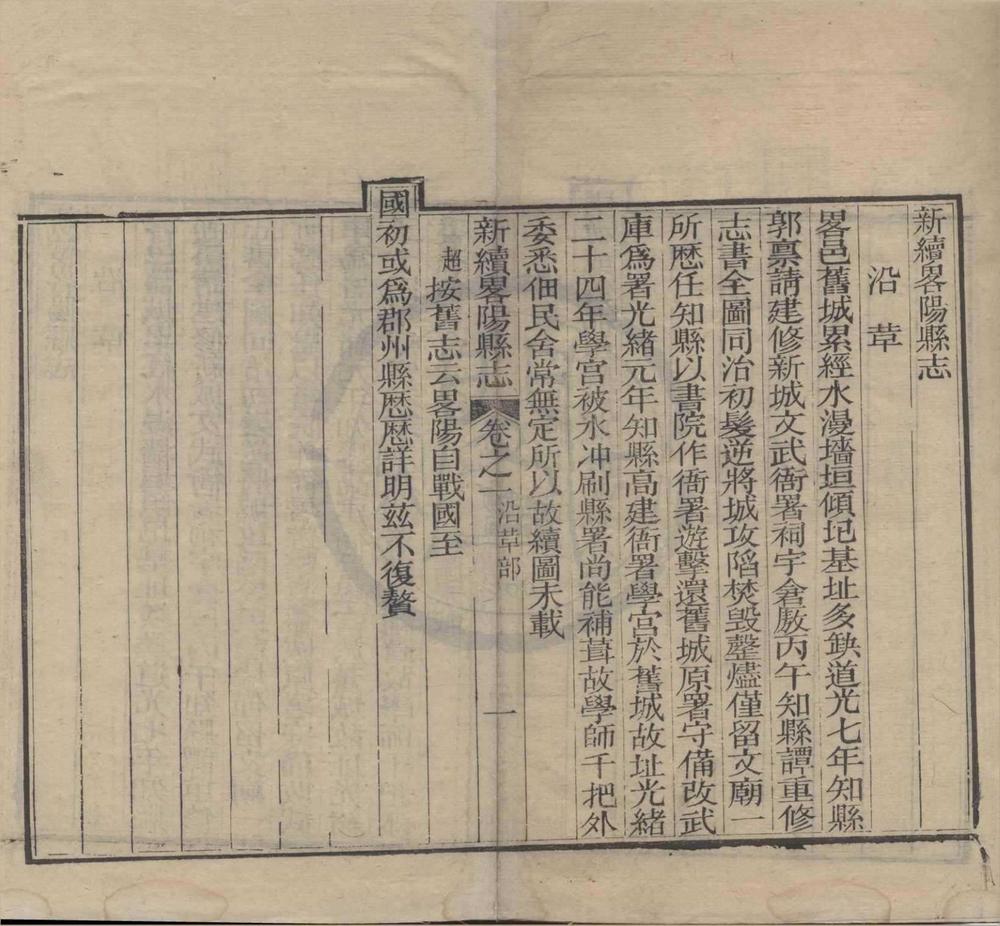 新續畧陽縣志
沿革
畧邑舊城累經水漫墻垣傾圮基址多缺道光七年知縣
郭禀請建修新城文武衙署祠宇倉厫丙午知縣譚重修
志書全圖同治初髮逆將城攻陷焚毁罄燼僅留文廟一
所歷任知縣以書院作衙署遊擊還舊城原署守備改武
庫爲署光緒元年知縣高建衙署學宮於舊城故址光緒
二十四年學宮被水冲刷縣署尚能補葺故學師千把外
委悉佃民舍常無定所以故續圖未載
新續畧陽縣志 卷之一 沿革部 一
超按舊志云畧陽自戰國至
國初或爲郡州縣歷歷詳明玆不復贅